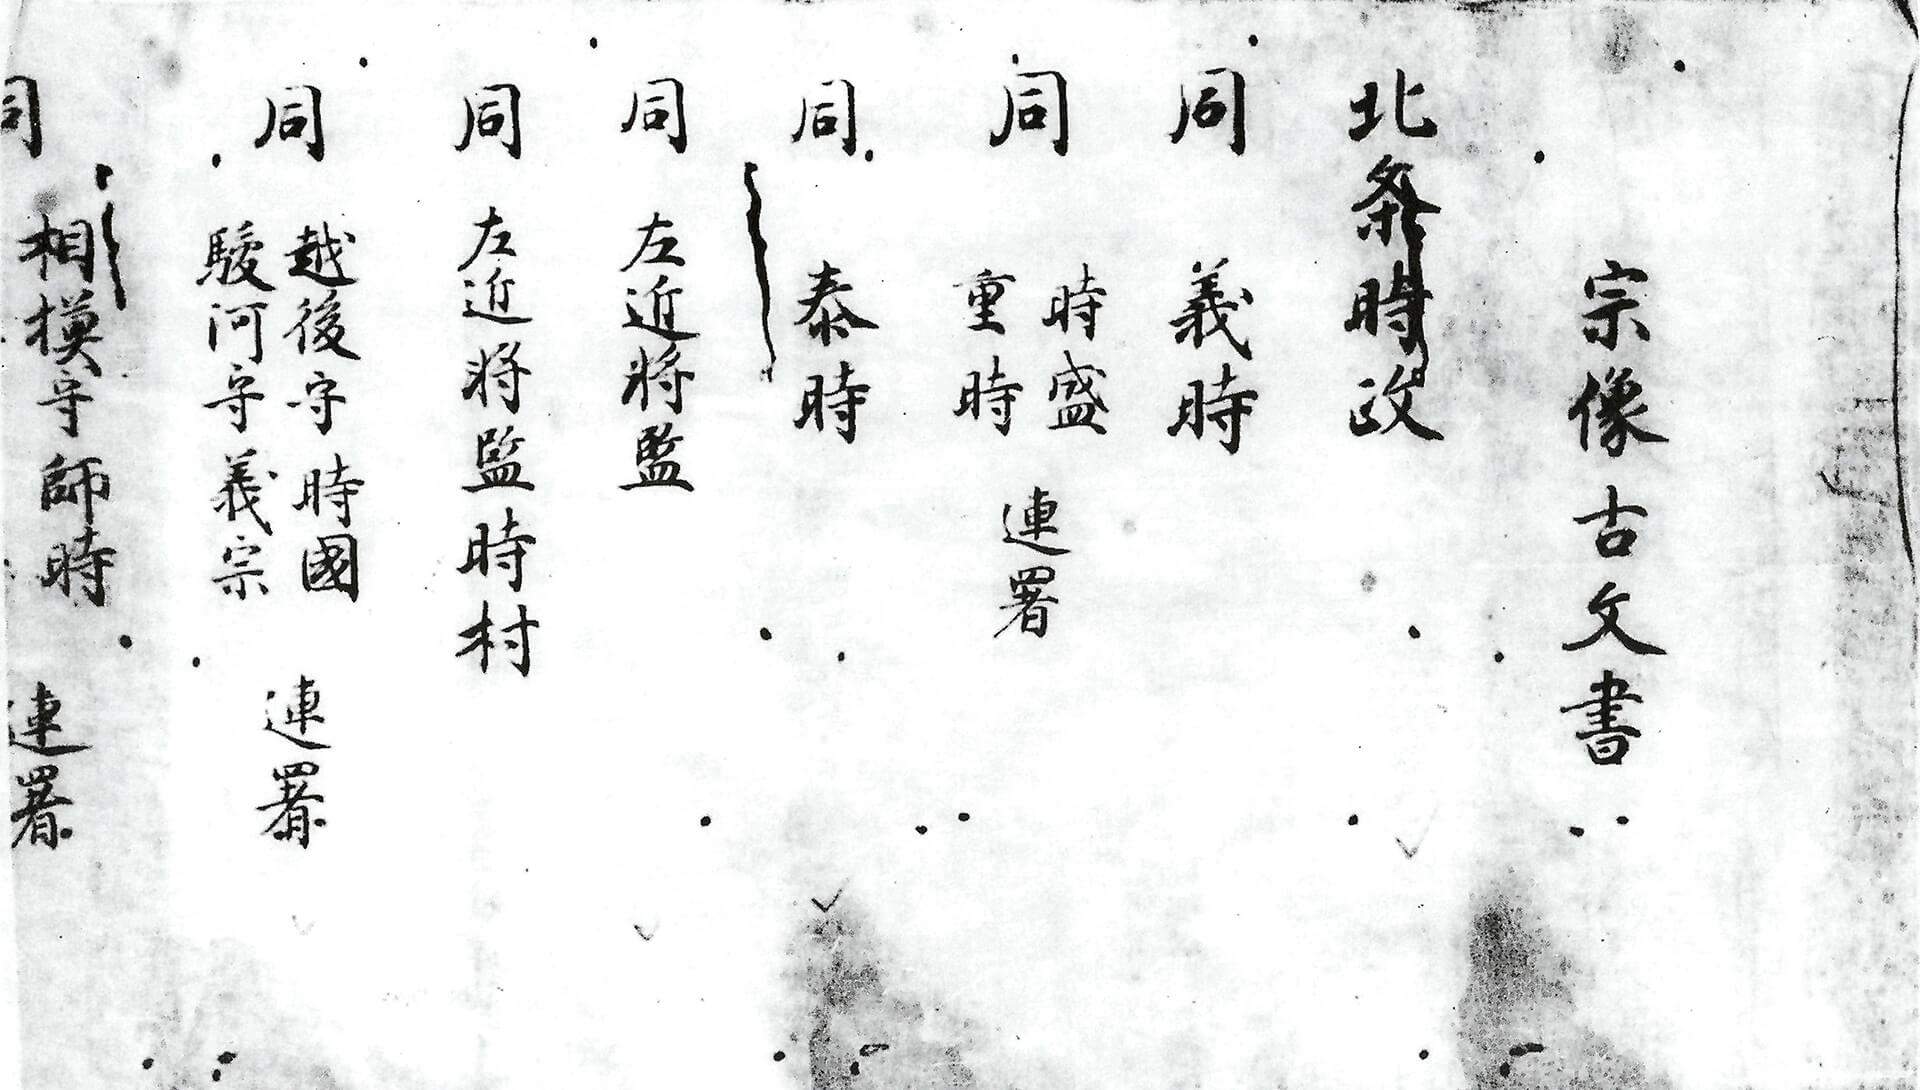 宗像古文書
北条時政
同 義時
同 時盛 重時 連署
同 泰時
同 左近将監
同 左近将監時村
同 越後守時國 駿河守義宗 連署
同 相模守師時 連署